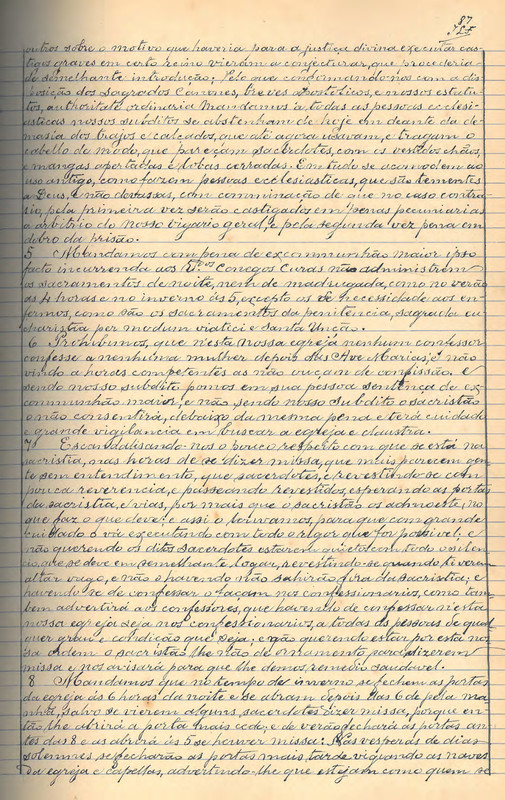 87
outros sobre o motivo que haveria para a justiça divina executar cas-
tigos graves em certo reino vieram a conjecturar, que procederia
de semelhante introducção; Pelo que conformando-nos com a dis-
posição dos Sagrados Canones, breves apostolicos, e nossos estatu-
tos, authoritate ordinaria mandamos a todas as pessoas ecclesi-
asticas nossos subditos se abstenham de hoje em deante da de-
masia dos trajos e calçados, que até agora usavam, e tragam o
cabello de modo, que pareçam sacerdotes, com os vestidos chãos,
e mangas apertadas e lobas cerradas. Em tudo se acomodem ao
uso antigo, como fazem pessoas ecclesiasticas, que são tementes
a Deus, e não devassas, com comminação de que no caso contra-
rio, pela primeira vez serão castigados em penas pecuniarias
a arbitrio do nosso vigario geral, e pela segunda vez pena em
dobro da prisão.
5 Mandamos com pena de excommunhão maior ipso
facto incurrenda aos Conegos Curas não administrem
os sacramentos de noite, nem de madrugada, como no verão
as 4 horas e no inverno ás 5, excepto os de necessidade aos en-
fermos, como são os sacramentos da penitencia, sagrada eu-
charistia per modum viatici e Santa Unção.
6 Prohibimos, que n'esta nossa egreja nenhum confessor
confesse a nenhuma mulher depois das Ave Marias; e não
vindo a horas competentes as não ouçam de confissão. e
sendo nosso subdito pomos em sua pessoa sentença de ex-
communhão maior, e não sendo nosso subdito o sacristão
o não consentirá, debaixo da mesma pena e terá cuidado
e grande vigilancia em buscar a egreja e claustra.
7 Escandalisando-nos o pouco respeito com que se está na
sacristia, nas horas de se dizer missa, que mais parecem gen-
te sem entendimento, que sacerdotes, e revestindo-se com
pouca reverencia, e passeando revestidos, esperando as portas
da sacristia, e vias, por mais que o sacristão os admoeste, no
que faz o que deve; e assi o louvamos, para que com grande
cuidado o vá executando com todo o rigor que fôr possivel; e
não querendo os ditos sacerdotes estarem quietos com todo o silen-
cio, que se deve em semelhante logar, revestindo-se quando tiverem
altar vago, e não o havendo não sahirão fóra da sacristia; e
havendo-se de confessar o façam nos confessionarios, como tam-
bem advertirá aos confessores, que havendo de confessar n'esta
nossa egreja seja nos confessionarios, a todas as pessoas de qual-
quer grau e condição que seja; e não querendo estar por esta nos-
sa ordem o sacristão lhe não dê ornamento para dizerem
missa e nos avisará para que lhe demos remedio saudavel.
8 Mandamos que no tempo de inverno se fechem as portas
da egreja ás 6 horas da noite e se abram depois das 6 de pela ma-
nhã, salvo se vierem alguns sacerdotes dizer missa, porque en-
tão lhe abrirá a porta mais cedo; e de verão fechará as portas an-
tes das 8 e as abrirá ás 5 se houver missa: Nas vesperas de dias
solemnes, se fecharão as portas mais tarde vigiando as naves
da egreja e capellas, advertindo-lhe que estejam como quem se